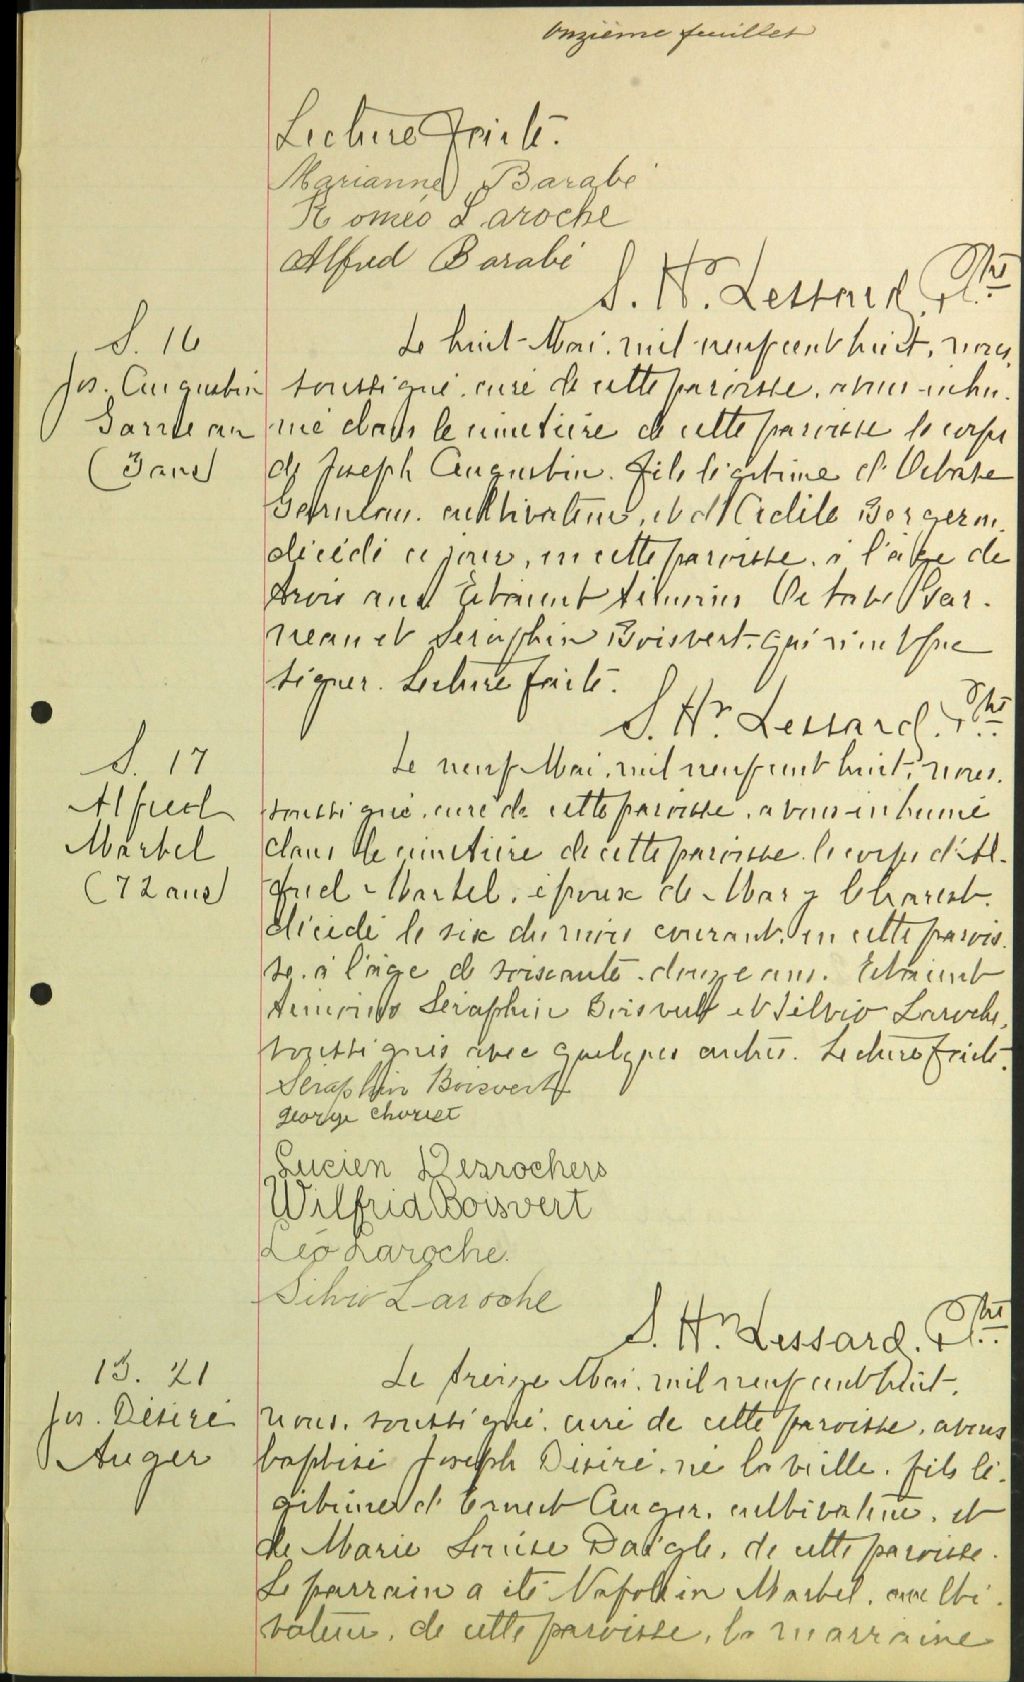 Onzième feuillet
Lecture faite.
Marianne Barabé
Roméo Laroche
Alfred Barabé
S. Hr. Lessard, Ptre
S. 16
Jos. Augustin
Garneau
(3 ans)
Le huit Mai, mil neuf cent huit, nous,
soussigné, curé de cette paroisse, avons inhu-
mé dans le cimetière de cette paroisse le corps
de Joseph Augustin, fils légitime d'Octave
Garneau, cultivateur, et d'Odile Bergeron,
décédé ce jour, en cette paroisse, à l'âge de
trois ans. Etaient témoins Octave Gar-
neau et Séraphin Boisvert, qui n'ont pu
signer. Lecture faite.
S. Hr. Lessard, Ptre
S. 17
Alfred
Martel
(72 ans)
Le neuf Mai, mil neuf cent huit, nous,
soussigné, curé de cette paroisse, avons inhumé
dans le cimetière de cette paroisse le corps d'Al-
fred Martel, époux de Mary Charest,
décédé le six du mois courant, en cette parois-
se, à l'âge de soixante-douze ans. Etaient
témoins Séraphin Boisvert et Silvio Laroche,
soussignés avec quelques autres. Lecture faite.
Séraphin Boisvert
george
Lucien Desrochers
Wilfrid Boisvert
Léo Laroche
Silvio Laroche
S. Hr. Lessard, Ptre
B. 21
Jos. Désiré
Auger
Le treize Mai, mil neuf cent huit,
nous, soussigné, curé de cette paroisse, avons
baptisé Joseph Désiré, né la veille, fils lé-
gitime d'Ernest Auger, cultivateur, et
de Marie Louise Daigle, de cette paroisse.
Le parrain a été Napoléon Martel, culti-
vateur, de cette paroisse, la marraine